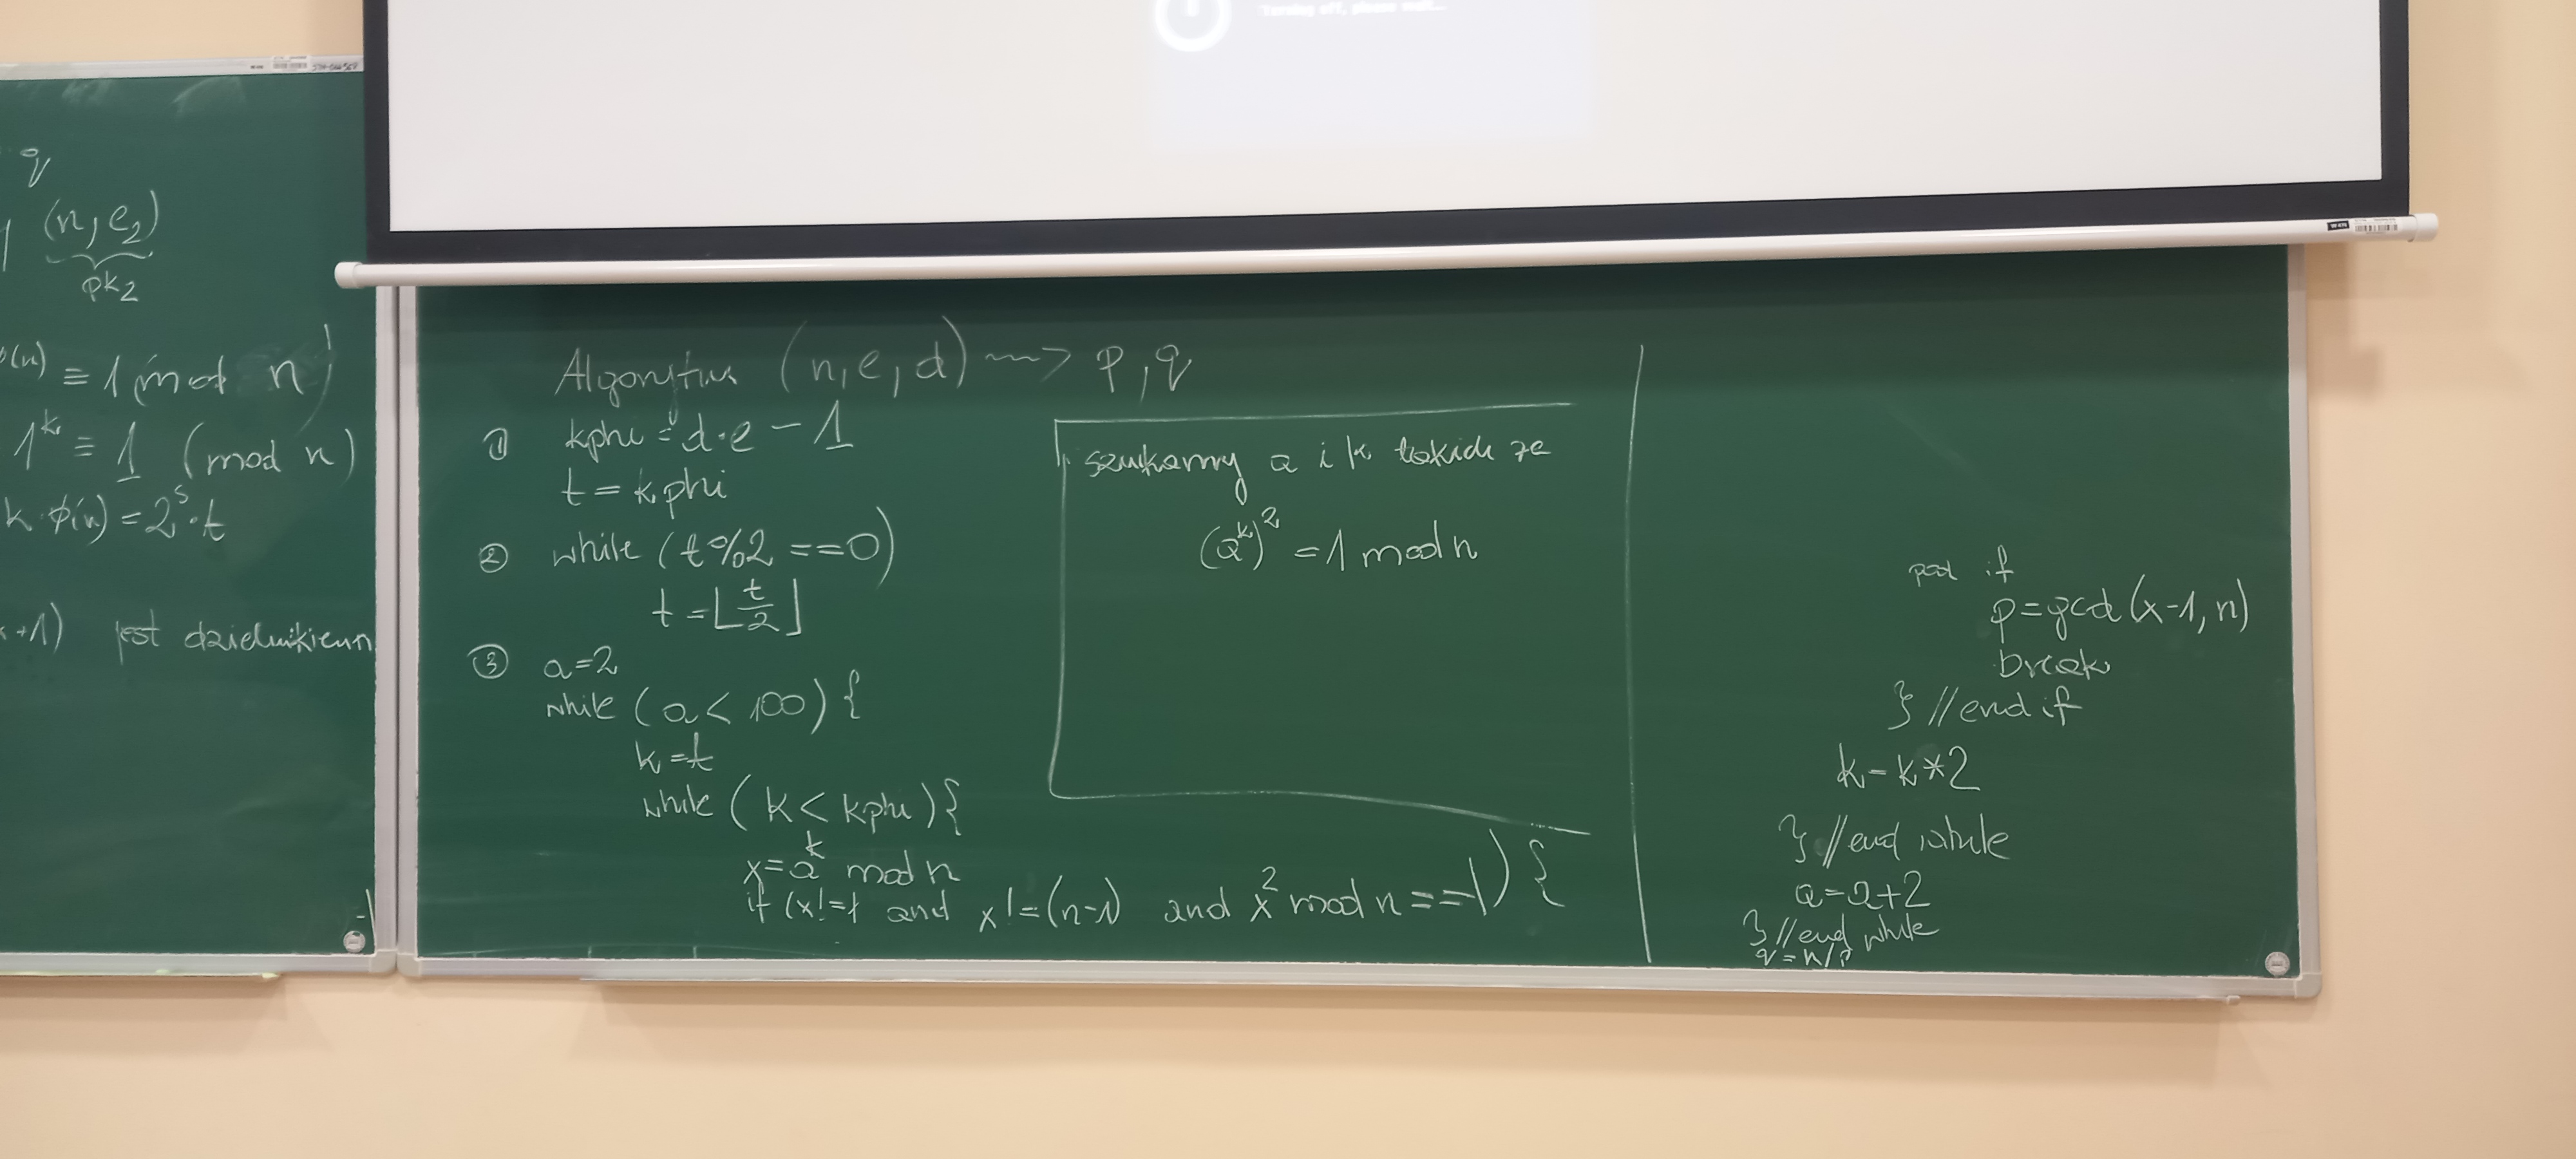 Turning off, please wait...
q
(n, e₂)
pk₂
φ(n) ≡ 1 (mod n)
1ᵏ ≡ 1 (mod n)
k·φ(n) = 2ˢ·t
+1) jest dzielnikiem
Algorytm (n, e, d) ~~> p, q
① kphi = d·e − 1
t = kphi
② while (t%2 == 0)
t = ⌊t/2⌋
③ a=2
while (a < 100) {
k = t
while (k < kphi) {
x = aᵏ mod n
if (x != 1 and x != (n-1) and x² mod n == 1) {
szukamy a i k takich ze
(aᵏ)² = 1 mod n
pod if
p = gcd(x-1, n)
break
} // end if
k = k*2
} // end while
a = a+2
} // end while
q = n/p